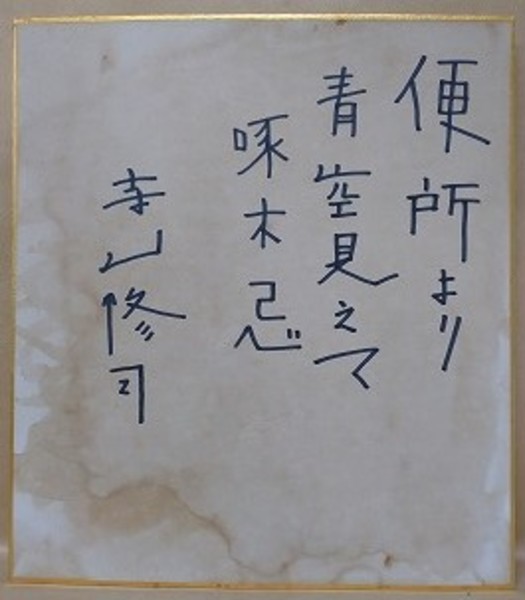 便所より
青空見えて
啄木忌
寺山修司